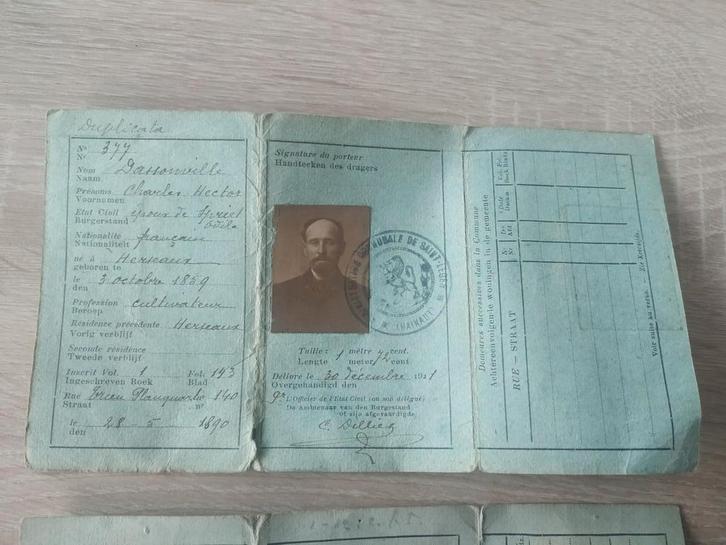 Duplicata
N° 377
N°
Nom Dassonville
Naam
Prénoms Charles Hector
Voornamen
Etat Civil époux de
Burgerstand
Nationalité français
Nationaliteit
né à Herseaux
geboren te
le 3 octobre 1859
den
Profession cultivateur
Beroep
Résidence précédente Herseaux
Vorig verblijf
Seconde résidence
Tweede verblijf
Inscrit Vol. 1 Fol. 193
Ingeschreven Boek Blad
Rue 140
Straat n°
le 28 5 1890
den
Signature du porteur
Handteeken des dragers
COMMUNALE DE SAINT-LEGER
HAINAUT
Taille: 1 mètre 72 cent.
Lengte meter cent
Délivré le 30 décembre 1921
Overgehandigd den
L'Officier de l'Etat Civil (ou son délégué)
De Ambtenaar van den Burgerstand
of zijn afgevaardigde,
Demeures successives dans la Commune
Achtereenvolgende woningen in de gemeente
RUE - STRAAT
N°
Nr
Date
Datum
Vol. Fol.
Boek Bladz.
Voir suite au verso.
Zie Keerzijde.